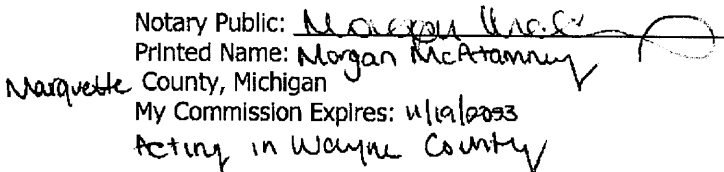 Notary Public: Morgan
Printed Name: Morgan McAtamney
Marquette County, Michigan
My Commission Expires: 11/19/2093
Acting in Wayne County